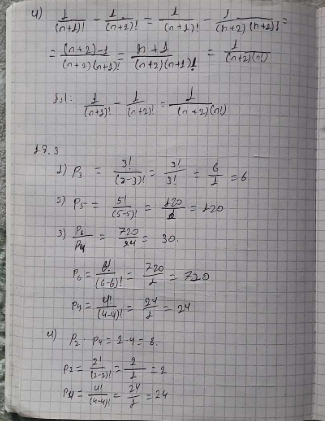 4) 1/(n+1)! - 1/(n+2)! = 1/(n+1)! - 1/(n+2)(n+1)! =
= (n+2)-1/(n+2)(n+1)! = n+1/(n+2)(n+1)! = 1/(n+2)(n!)
1/(n+1)! - 1/(n+2)! = 1/(n+2)(n!)
17.3
1) P3 = 3!/(3-3)! = 3!/3! = 6/1 = 6
2) P5 = 5!/(5-5)! = 120/1 = 120
3) P6/P4 = 720/24 = 30.
P6 = 6!/(6-6)! = 720/1 = 720
P4 = 4!/(4-4)! = 24/1 = 24
4) P2 · P4 = 2·4 = 8.
P2 = 2!/(2-2)! = 2/1 = 2
P4 = 4!/(4-4)! = 24/1 = 24